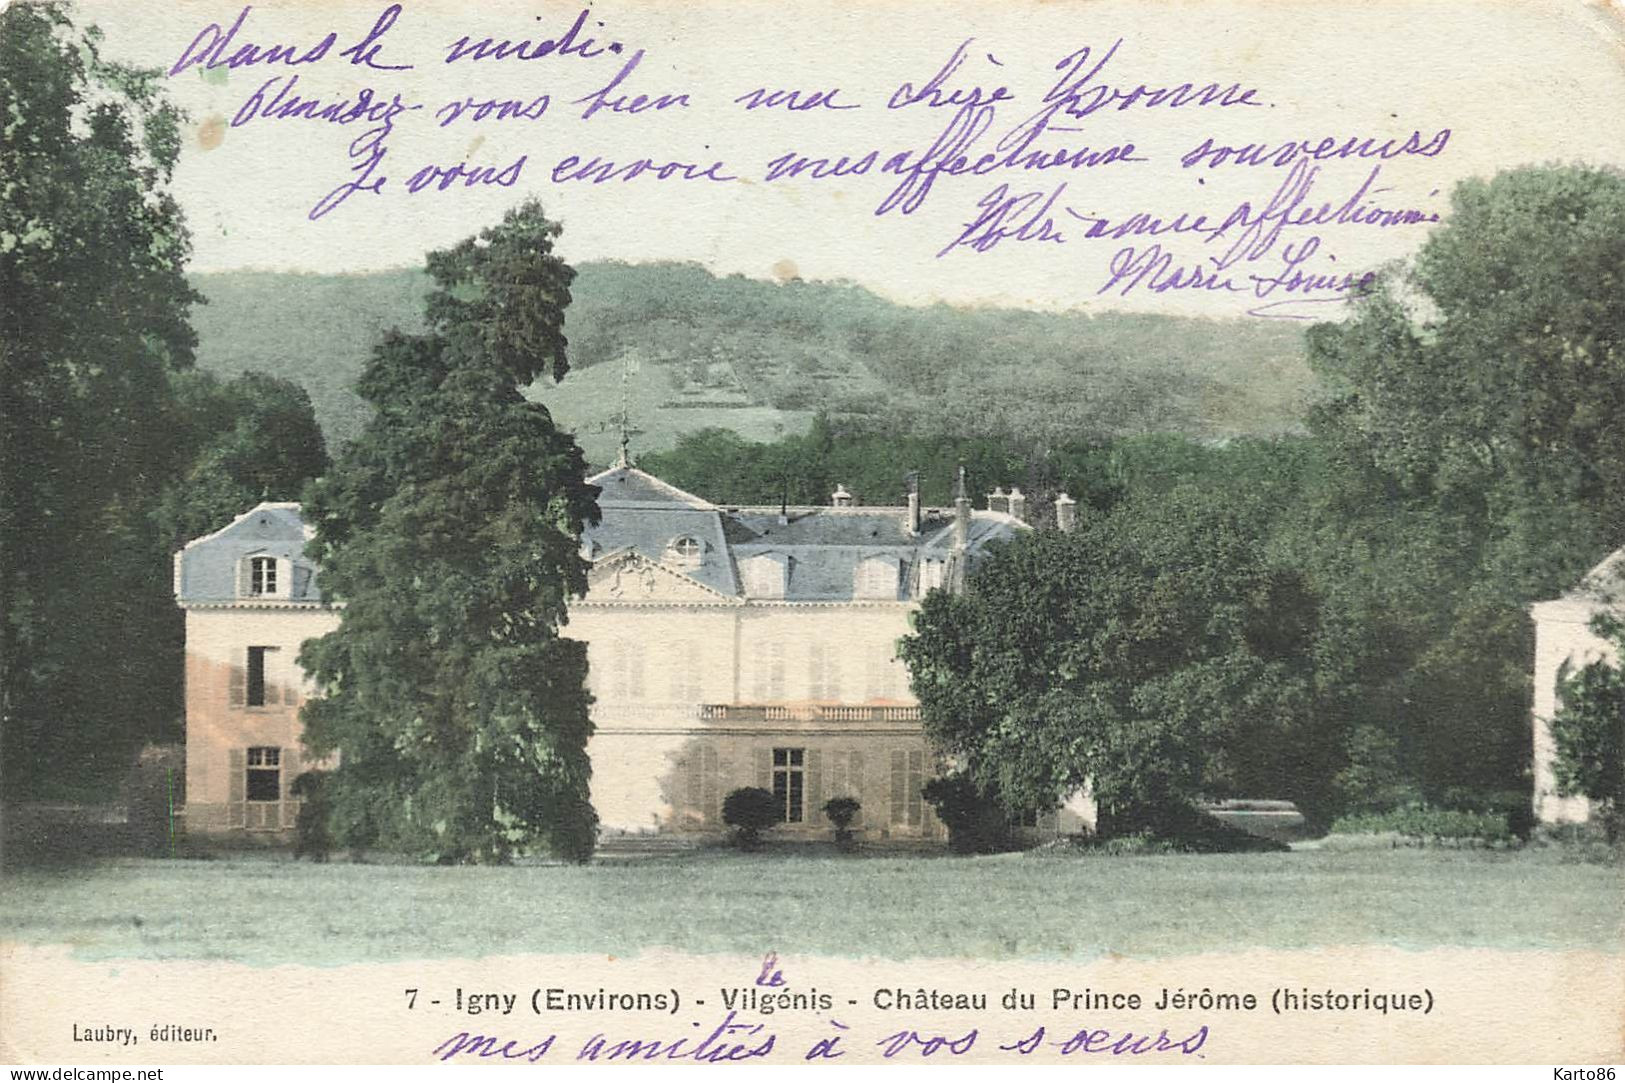 dans le midi.
Amusez-vous bien ma chère Yvonne.
Je vous envoie mes affectueux souvenirs
Votre amie affectionnée
Marie Louise
le
7 - Igny (Environs) - Vilgénis - Château du Prince Jérôme (historique)
Laubry, éditeur.
mes amitiés à vos sœurs.
www.delcampe.net
Karto86